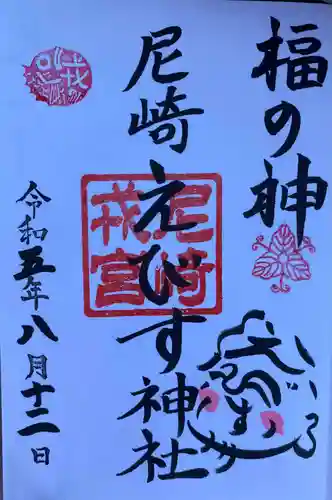 福の神
尼崎えびす神社
令和五年八月十二日
尼崎
戎宮